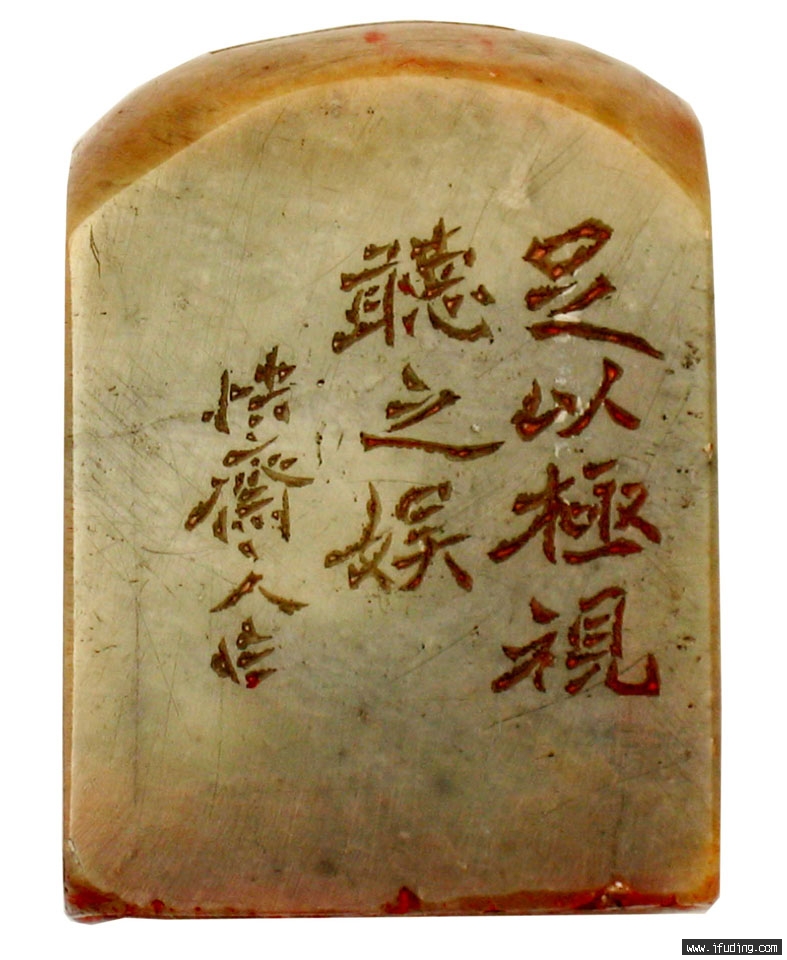 足以極視
聽之娛
齋
www.jfuding.com